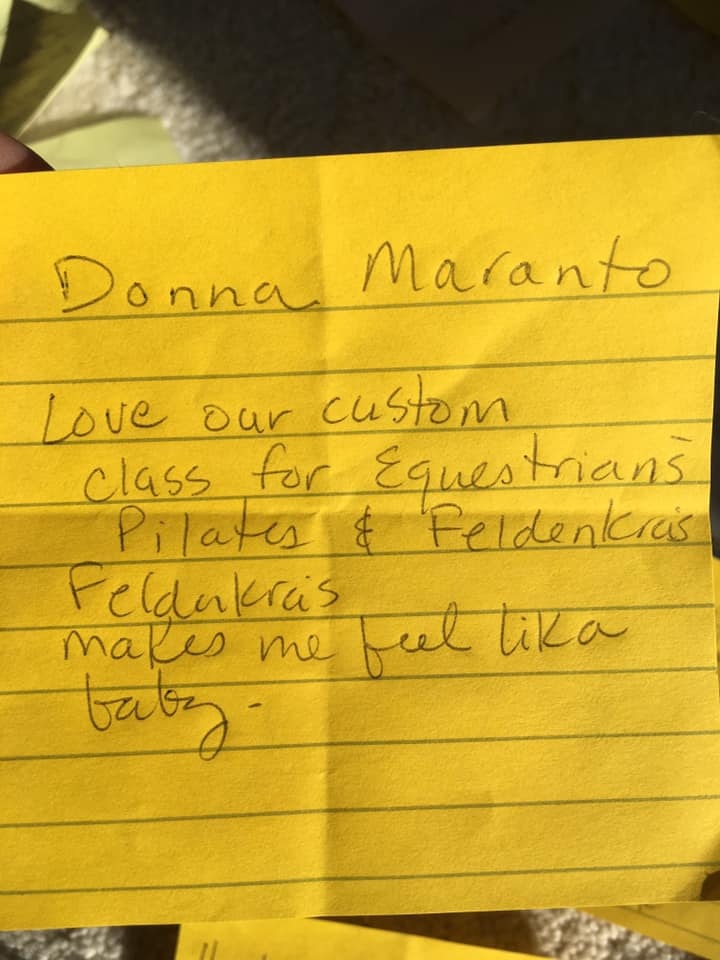 Donna Maranto
Love our custom
class for Equestrians
Pilates & Feldenkrais
Feldenkrais
makes me feel lika
baby.